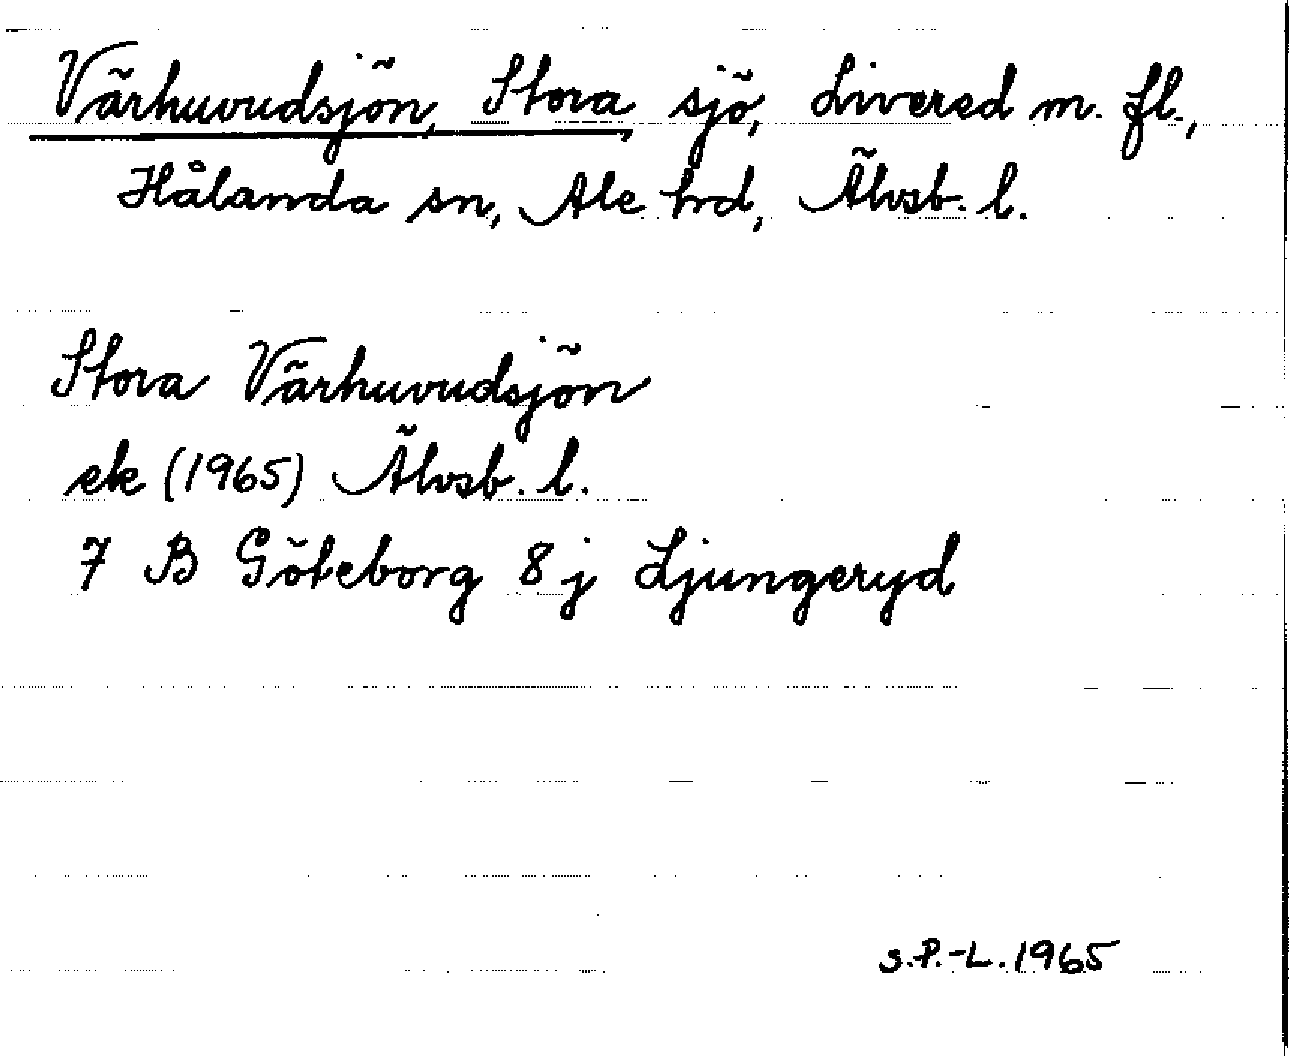 Värhuvudsjön, Stora, sjö, Livered m. fl.,
Hålanda sn, Ale hrd, Älvsb. l.
Stora Värhuvudsjön
ek (1965) Älvsb. l.
7 B Göteborg 8 j Ljungeryd
S.P.-L. 1965